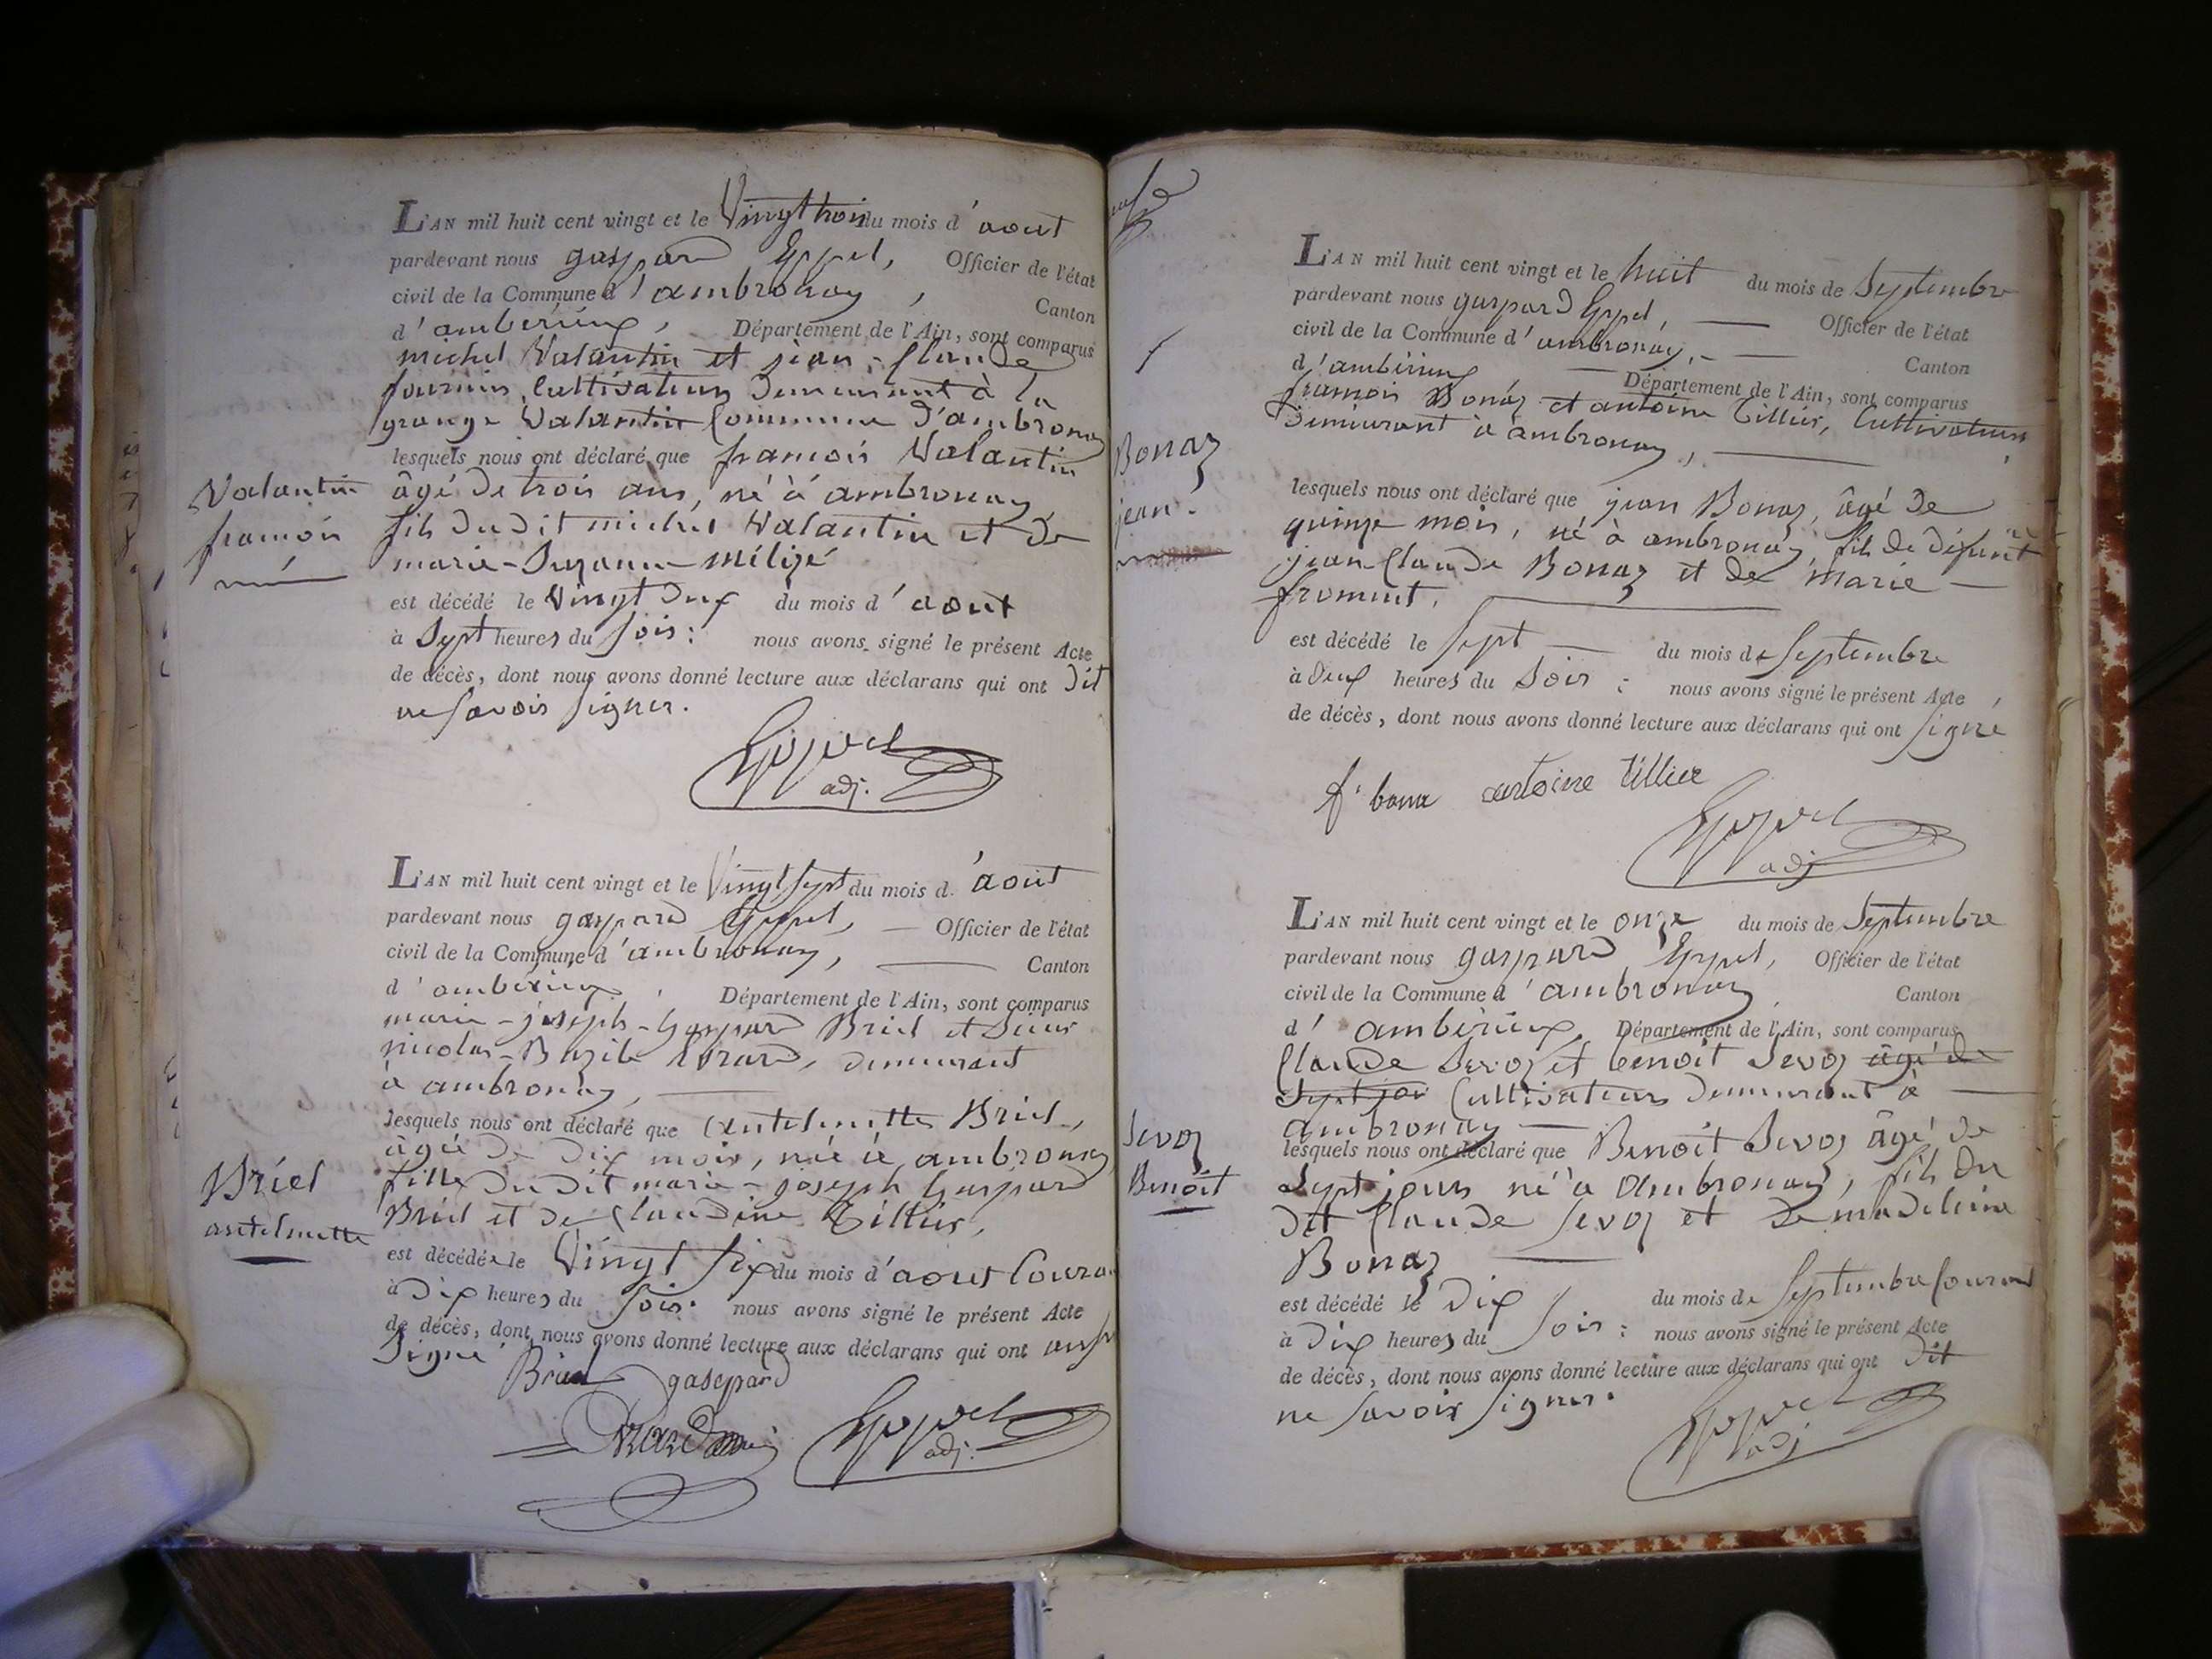 L'AN mil huit cent vingt et le Vingt trois du mois d'aout
pardevant nous gaspard Eppel, Officier de l'état
civil de la Commune d'ambronay, Canton
d'ambérieux, Département de l'Ain, sont comparus
michel Valantin et jean-Claude
fournier, Cultivateurs Demeurant à la
grange Valantin Commune D'ambronay
lesquels nous ont déclaré que francois Valantin
âgé de trois ans, né à ambronay
fils du dit michel Valantin et de
marie-Suzanne
est décédé le Vingt Deux du mois d'aout
à Sept heures du Soir: nous avons signé le présent Acte
de décès, dont nous avons donné lecture aux déclarans qui ont Dit
ne Savoir Signer.
Valantin
francois
Eppel
adj.
L'AN mil huit cent vingt et le Vingt Sept du mois d'aout
pardevant nous gaspard Eppel, Officier de l'état
civil de la Commune d'ambronay, Canton
d'ambérieux, Département de l'Ain, sont comparus
marie-joseph-Gaspard Briel et Sieur
nicolas-Bazile Evrard, demeurant
à ambronay,
lesquels nous ont déclaré que antelmette Briel,
âgée De Dix mois, née à ambronay
fille du dit marie-joseph Gaspard
Briel et de Claudine Tillier,
est décédée le Vingt Six du mois d'aout Courant
à Dix heures du Soir: nous avons signé le présent Acte
de décès, dont nous avons donné lecture aux déclarans qui ont
Signé
Briel
antelmette
Briel gaspard
Eppel
adj.
L'AN mil huit cent vingt et le huit du mois de Septembre
pardevant nous gaspard Eppel, Officier de l'état
civil de la Commune d'ambronay, Canton
d'ambérieux Département de l'Ain, sont comparus
francois Bonaz et antoine Tillier, Cultivateurs
Demeurant à ambronay,
lesquels nous ont déclaré que jean Bonaz, âgé De
quinze mois, né à ambronay, fils de défunt
jean-Claude Bonaz et de marie
froment,
est décédé le Sept du mois de Septembre
à Deux heures du Soir: nous avons signé le présent Acte
de décès, dont nous avons donné lecture aux déclarans qui ont Signé
Bonaz
jean.
f. bonaz antoine tillier
Eppel
adj
L'AN mil huit cent vingt et le onze du mois de Septembre
pardevant nous gaspard Eppel, Officier de l'état
civil de la Commune d'ambronay Canton
d'ambérieux, Département de l'Ain, sont comparus
Claude Sevoz et benoit Sevoz âgé de
Sept jou Cultivateurs Demeurant à
ambronay
lesquels nous ont déclaré que Benoît Sevoz âgé de
Sept jours né à ambronay, fils du
dit Claude Sevoz et de madeleine
Bonaz
est décédé le Dix du mois de Septembre Courant
à Dix heures du Soir: nous avons signé le présent Acte
de décès, dont nous avons donné lecture aux déclarans qui ont Dit
ne Savoir Signer.
Sevoz
Benoît
Eppel
adj